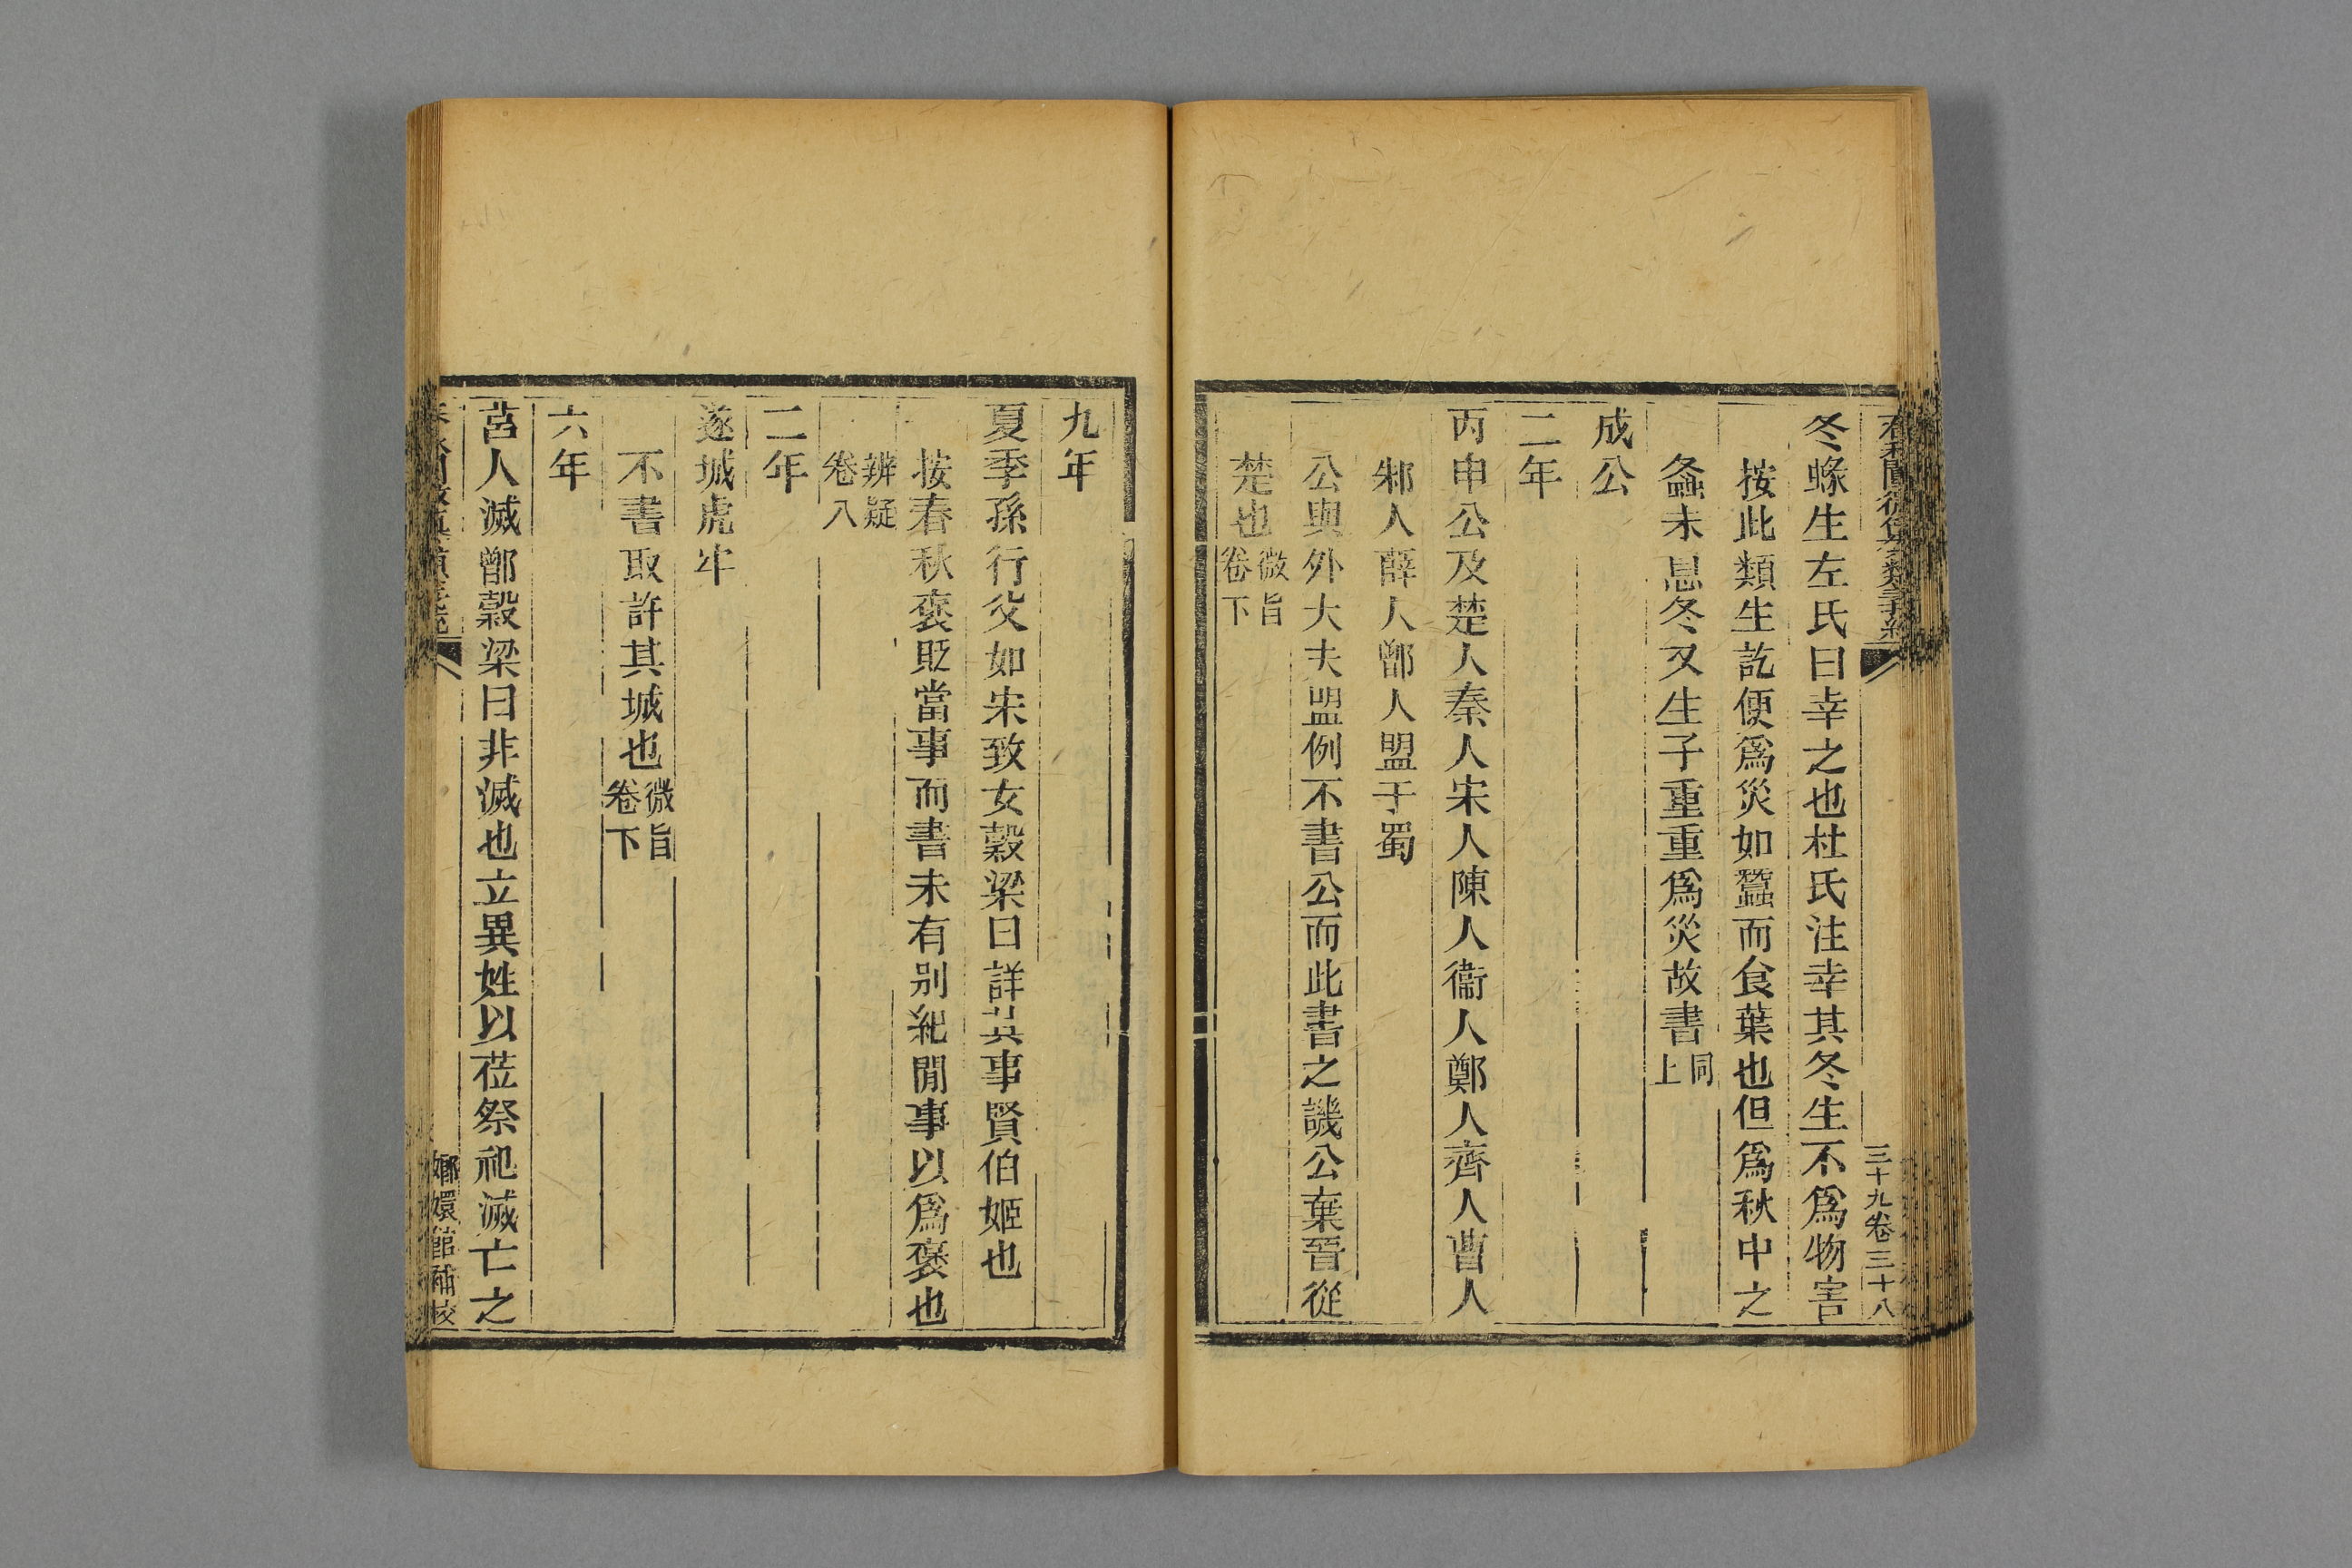 冬蝝生左氏曰幸之也杜氏注幸其冬生不爲物害
按此類生訖便爲災如蠶而食葉也但爲秋中之
螽未息冬又生子重重爲災故書同上
成公
二年
丙申公及楚人秦人宋人陳人衞人鄭人齊人曹人
邾人薛人鄫人盟于蜀
公與外大夫盟例不書公而此書之譏公棄晉從
楚也微旨卷下
三十九卷 三十八
九年
夏季孫行父如宋致女穀梁曰詳其事賢伯姬也
按春秋褒貶當事而書未有别紀閒事以爲褒也
辨疑卷八
二年
遂城虎牢
不書取許其城也微旨卷下
六年
莒人滅鄫穀梁曰非滅也立異姓以莅祭祀滅亡之
嫏嬛館補校